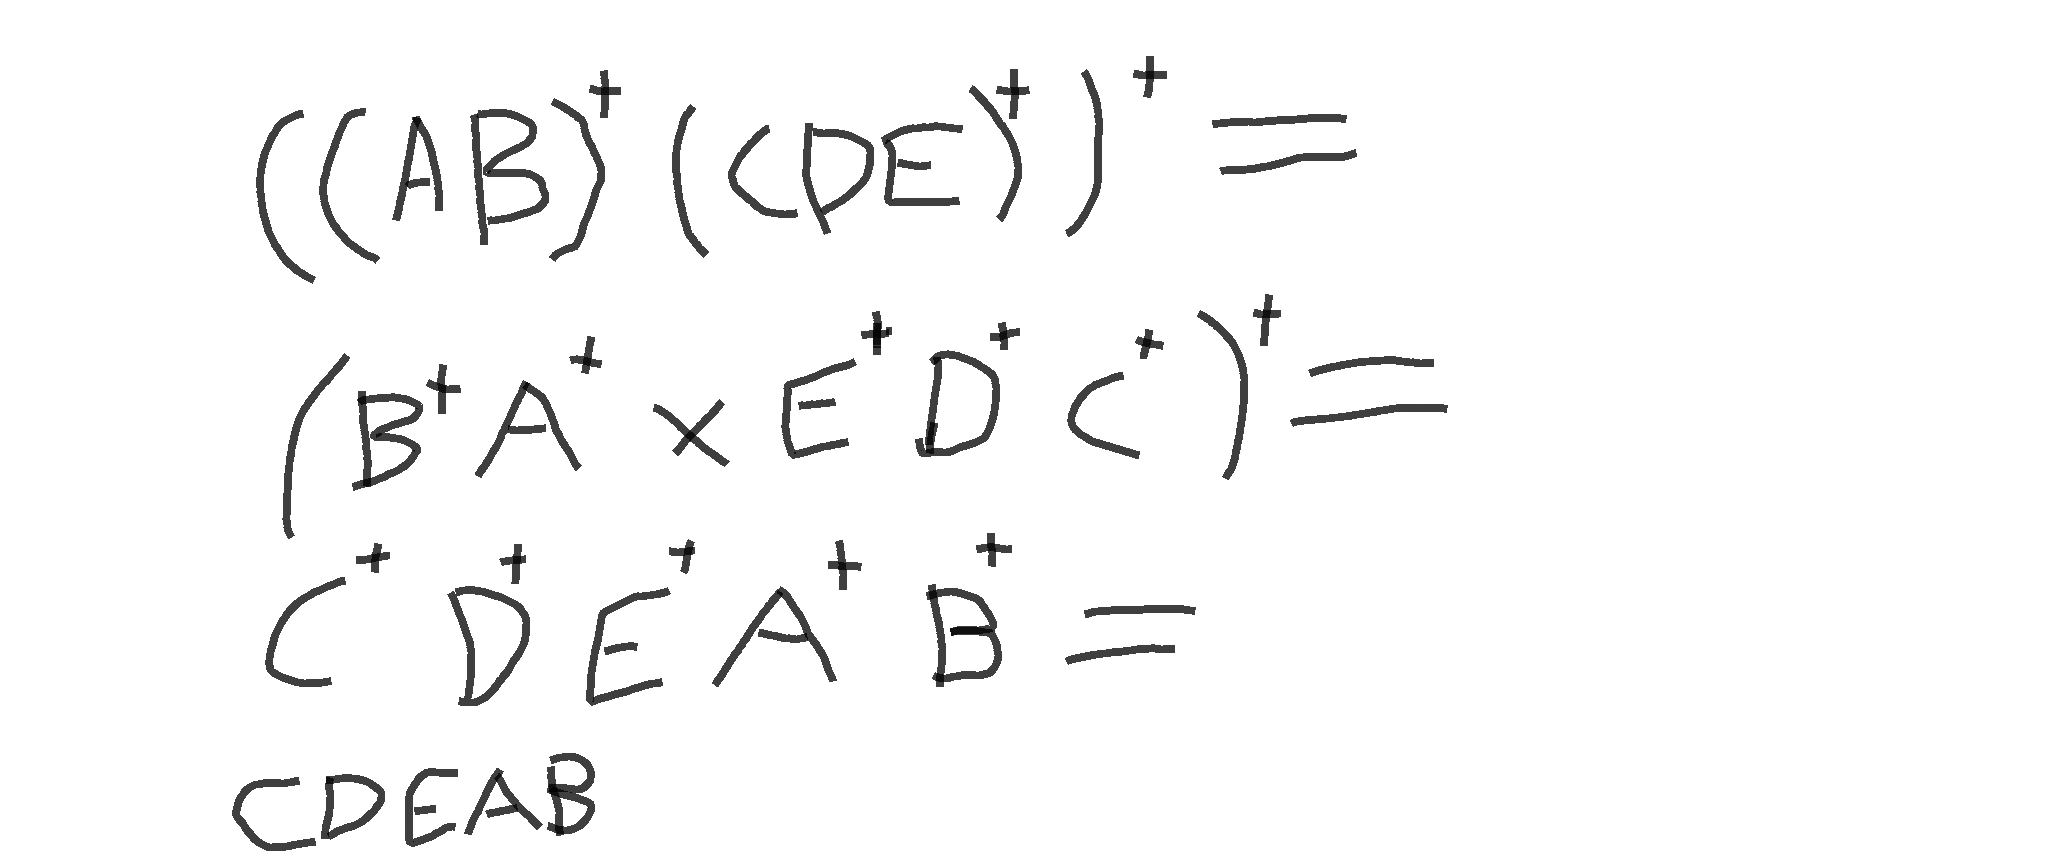 ((AB)⁺(CDE)⁺)⁺ =
(B⁺A⁺ × E⁺D⁺C⁺)⁺ =
C⁺D⁺E⁺A⁺B⁺ =
CDEAB